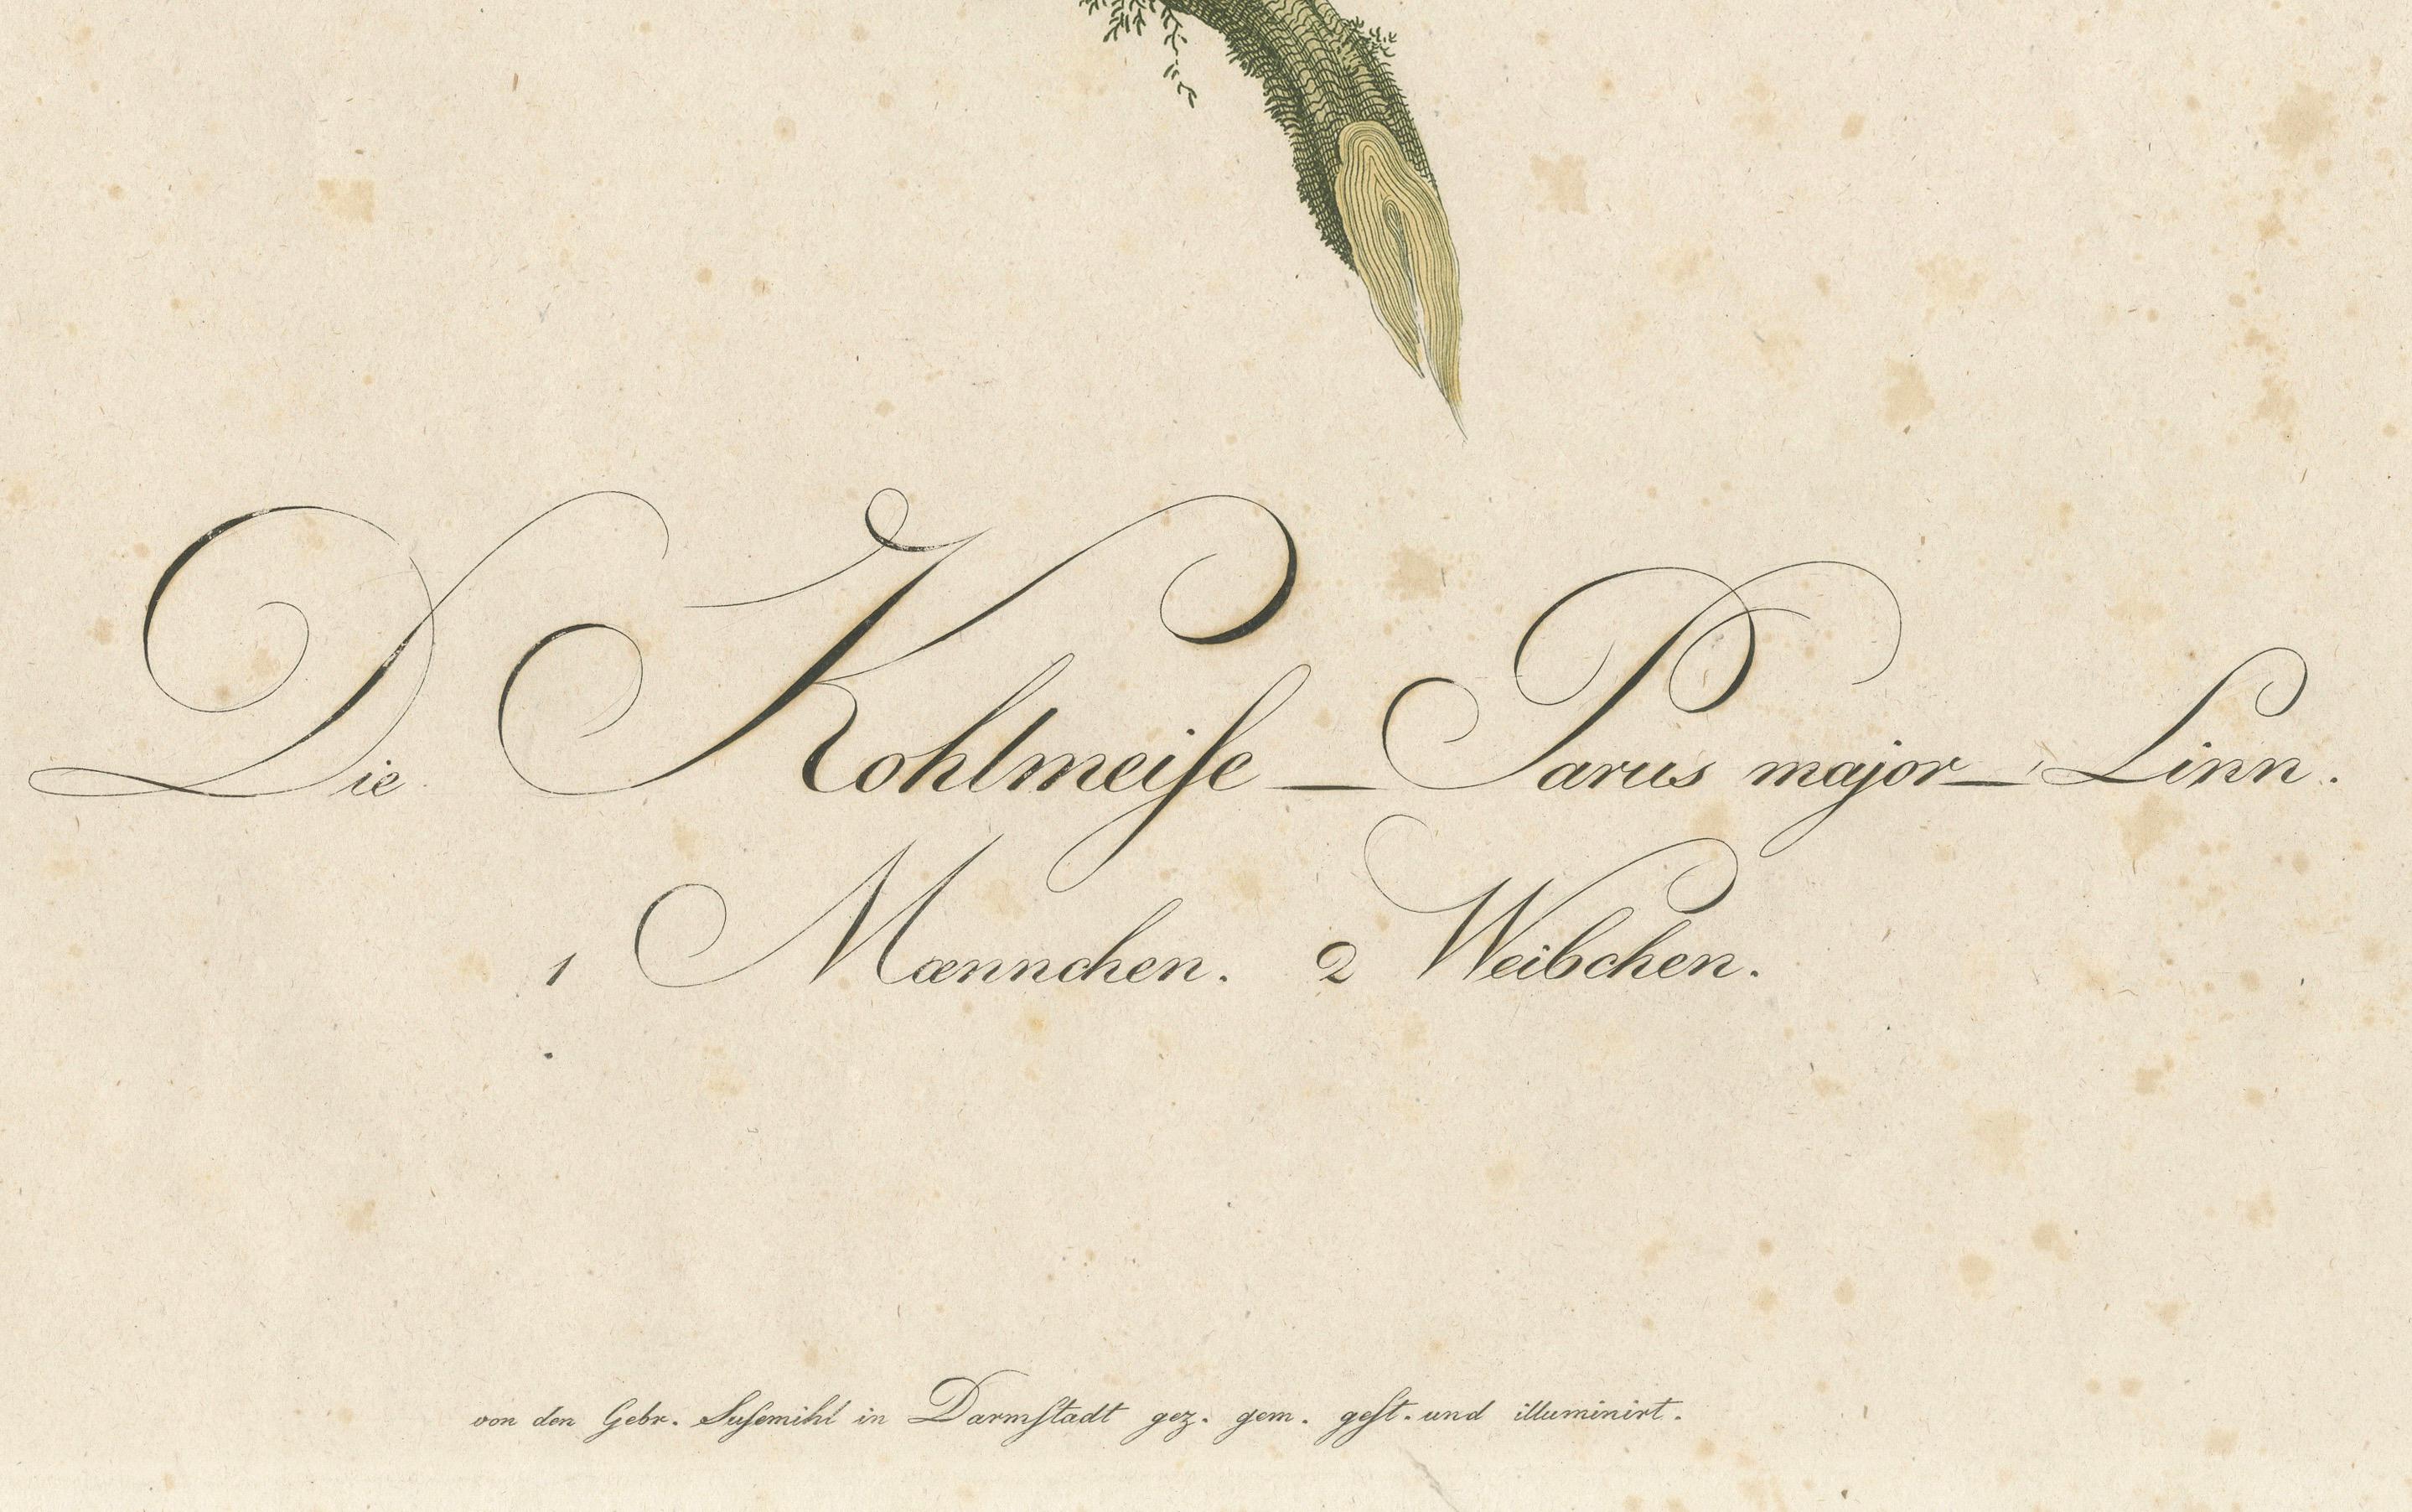 Die Kohlmeiſe — Parus major — Linn.
1 Mœnnchen. 2 Weibchen.
von den Gebr. Suſemihl in Darmſtadt gez. gem. geſt. und illuminirt.